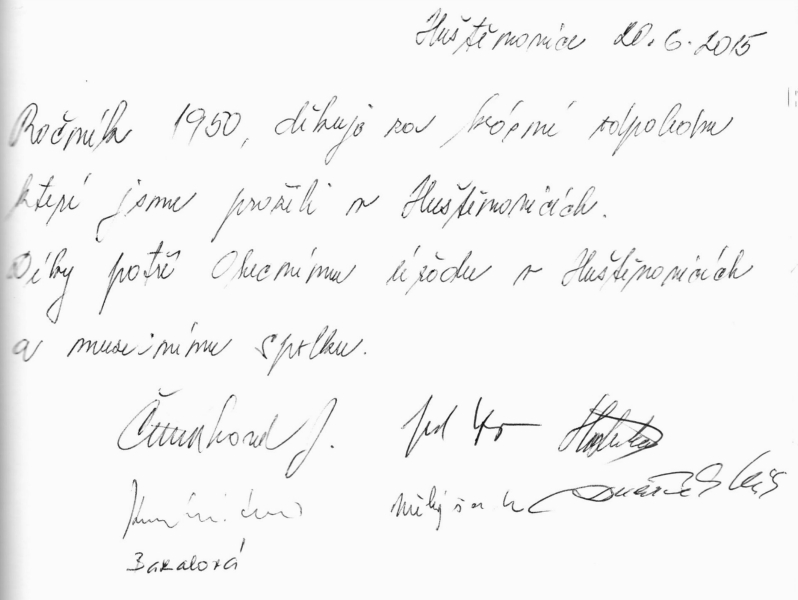 Huštěnovice 20.6.2015
Ročník 1950, děkuje za krásné odpoledne
které jsme prožili v Huštěnovicích.
Díky patří Obecnímu úřadu v Huštěnovicích
a musejnímu spolku.
J.
Bazalová